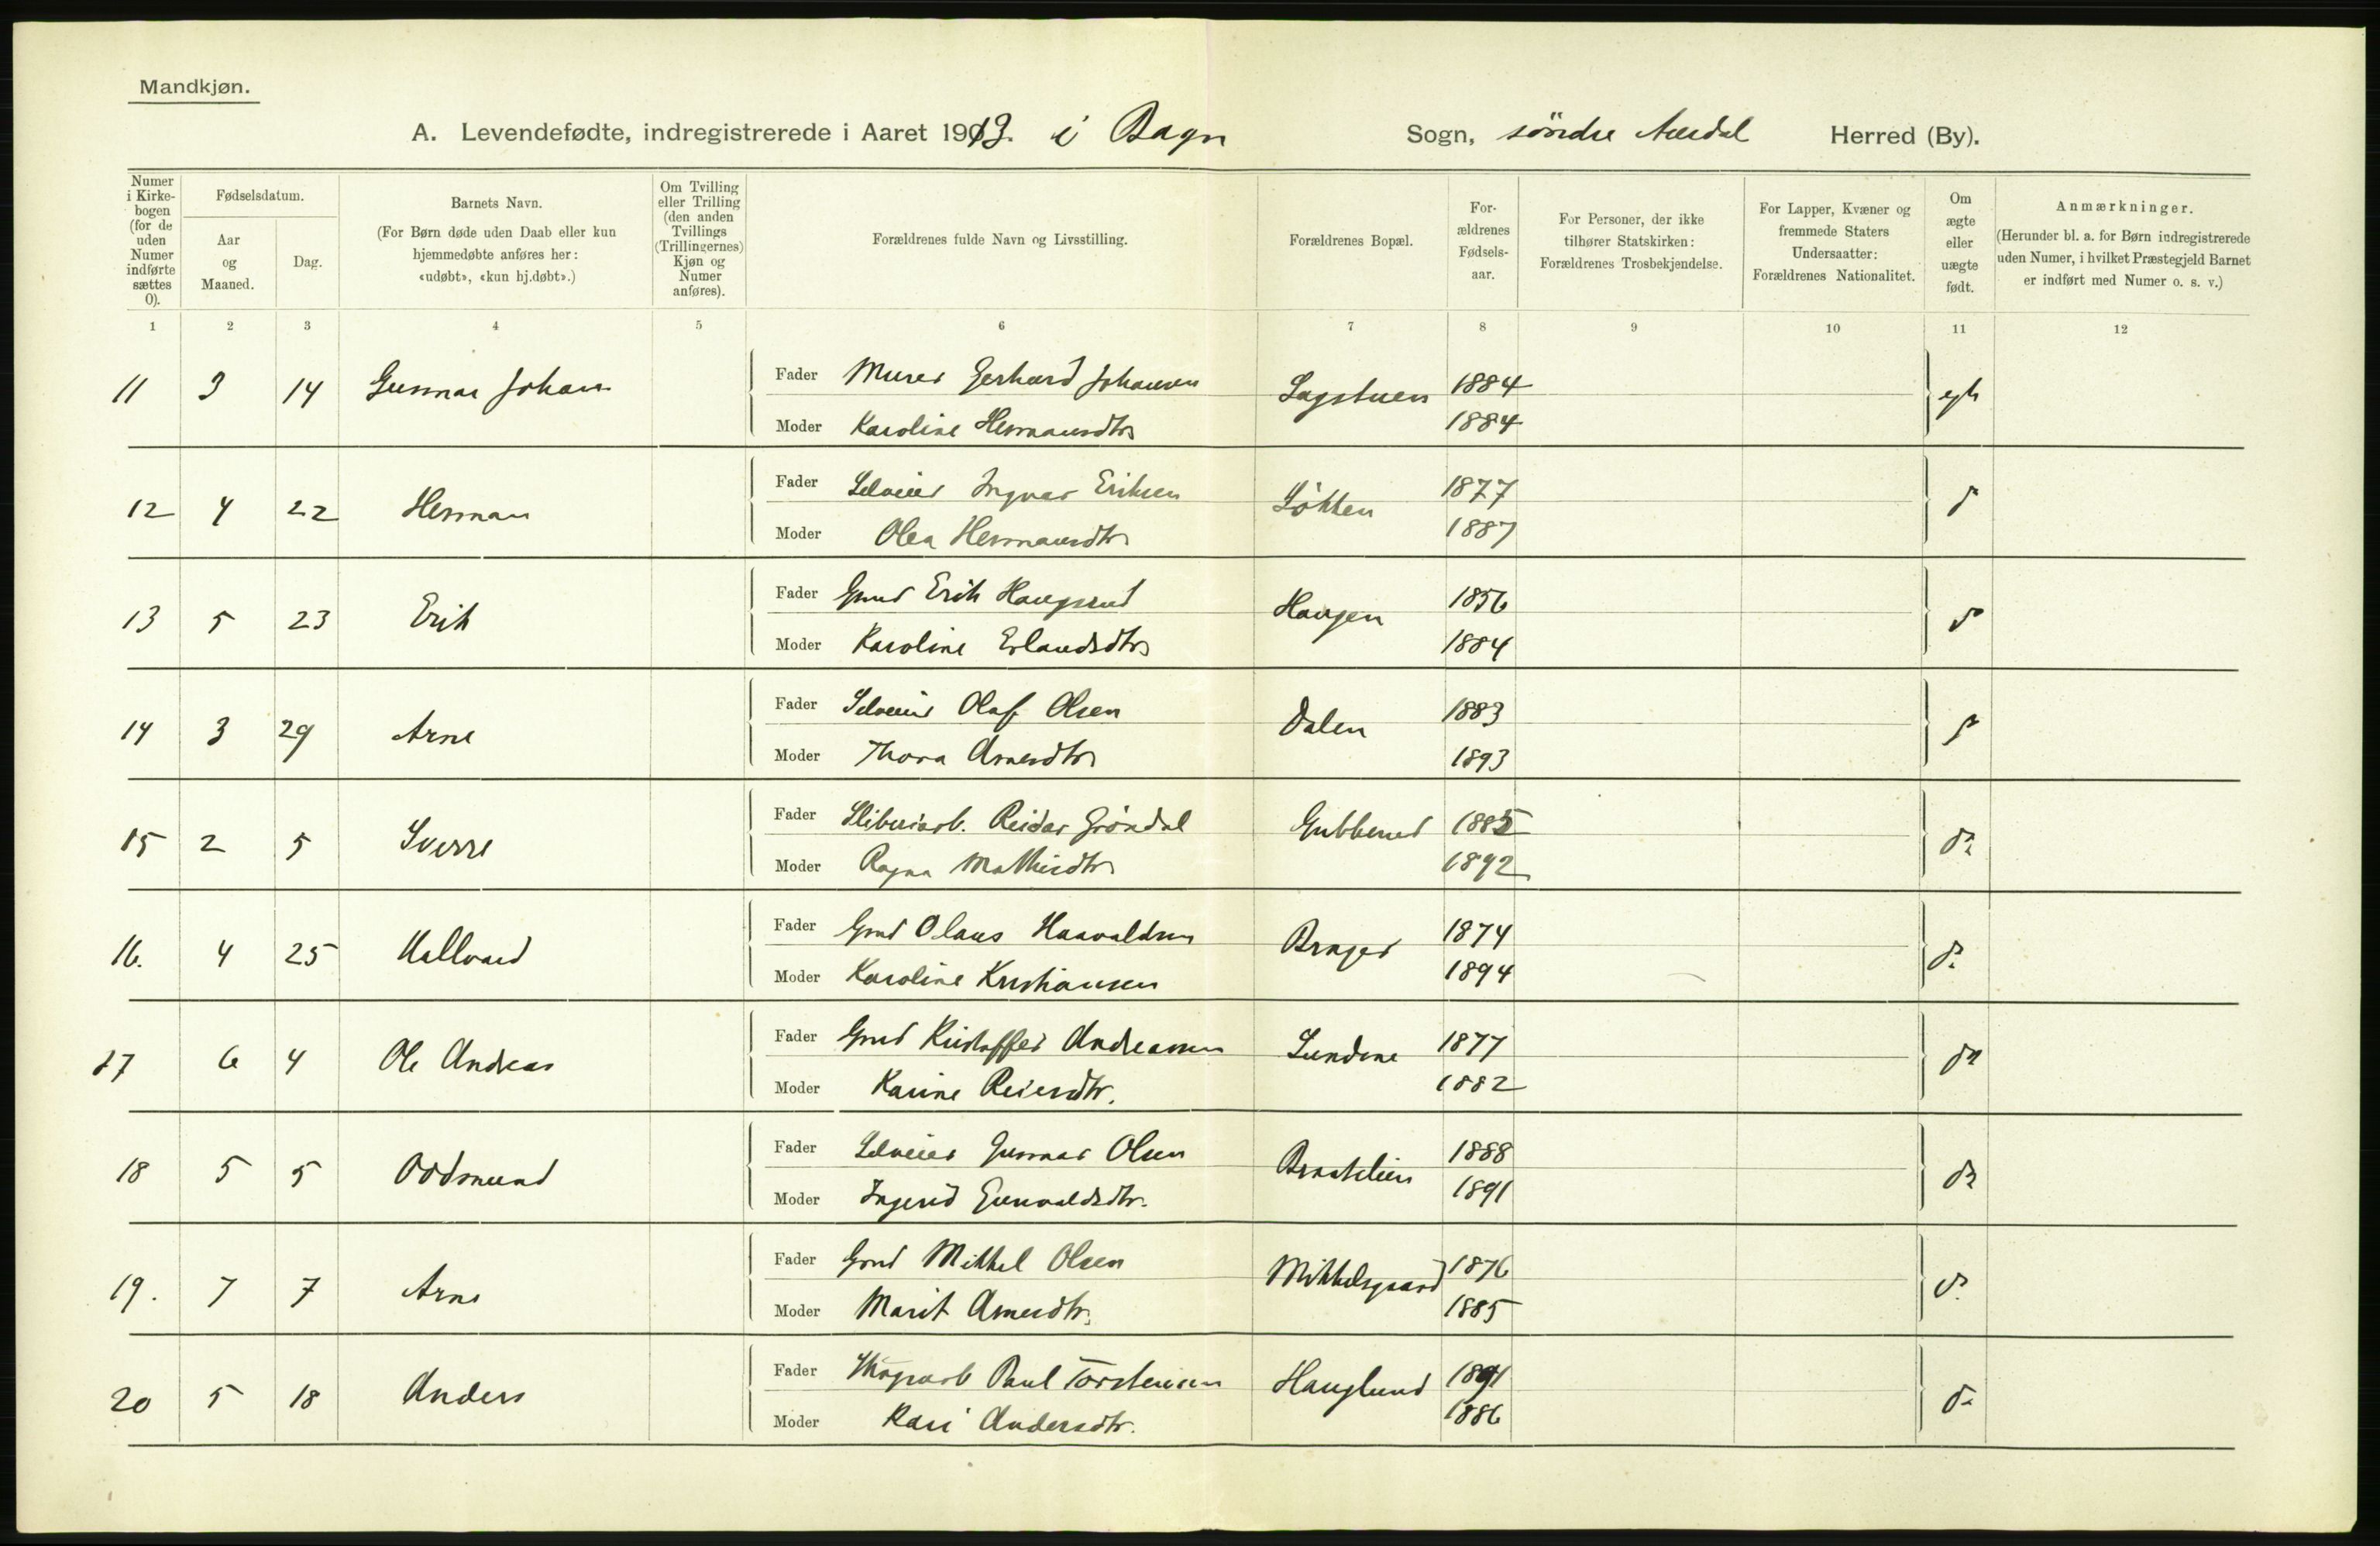 Mandkjøn.
A. Levendefødte, indregistrerede i Aaret 1913. i Bagn Sogn, söndre Aurdal Herred (By).
Numer i Kirkebogen (for de uden Numer indførte sættes 0).
Fødselsdatum.
Aar og Maaned.
Dag.
Barnets Navn.
(For Børn døde uden Daab eller kun hjemmedøbte anføres her: «udøbt», «kun hj.døbt».)
Om Tvilling eller Trilling (den anden Tvillings (Trillingernes) Kjøn og Numer anføres).
Forældrenes fulde Navn og Livsstilling.
Forældrenes Bopæl.
Forældrenes Fødselsaar.
For Personer, der ikke tilhører Statskirken: Forældrenes Trosbekjendelse.
For Lapper, Kvæner og fremmede Staters Undersaatter: Forældrenes Nationalitet.
Om ægte eller uægte født.
Anmærkninger.
(Herunder bl. a. for Børn indregistrerede uden Numer, i hvilket Præstegjeld Barnet er indført med Numer o. s. v.)
1 2 3 4 5 6 7 8 9 10 11 12
11 3 14 Gunnar Johan Fader Murer Gerhard Johansen Sagstuen 1884 egte
Moder Karoline Hermansdtr 1884
12 4 22 Herman Fader Selveier Ingvar Eriksen Løkken 1877 do
Moder Olea Hermansdtr 1887
13 5 23 Erik Fader Gmd Erik Haugsrud Haugen 1856 do
Moder Karoline Erlandsdtr 1884
14 3 29 Arne Fader Selveier Olaf Olsen Dalen 1883 do
Moder Thora Arnesdtr 1893
15 2 5 Sverre Fader Sliberiarb. Reidar Gröndal 1885 do
Moder Ragna Mathisdtr 1892
16. 4 25 Hallvard Fader Gmd Olaus Haavaldsen Brager 1874 do
Moder Karoline Kristiansen 1894
17 6 4 Ole Andreas Fader Gmd Kristoffer Andreassen Sundene 1877 do
Moder Karine Reiersdtr. 1882
18 5 5 Oddmund Fader Selveier Gunnar Olsen Bratelien 1888 do
Moder Ingerid Gunvaldsdtr. 1891
19. 7 7 Arne Fader Gmd Mikkel Olsen Mikkelsgaard 1876 do
Moder Marit Arnesdtr. 1885
20 5 18 Anders Fader Skogsarb Paul Torstensen Hauglund 1891 do
Moder Kari Andersdtr. 1886